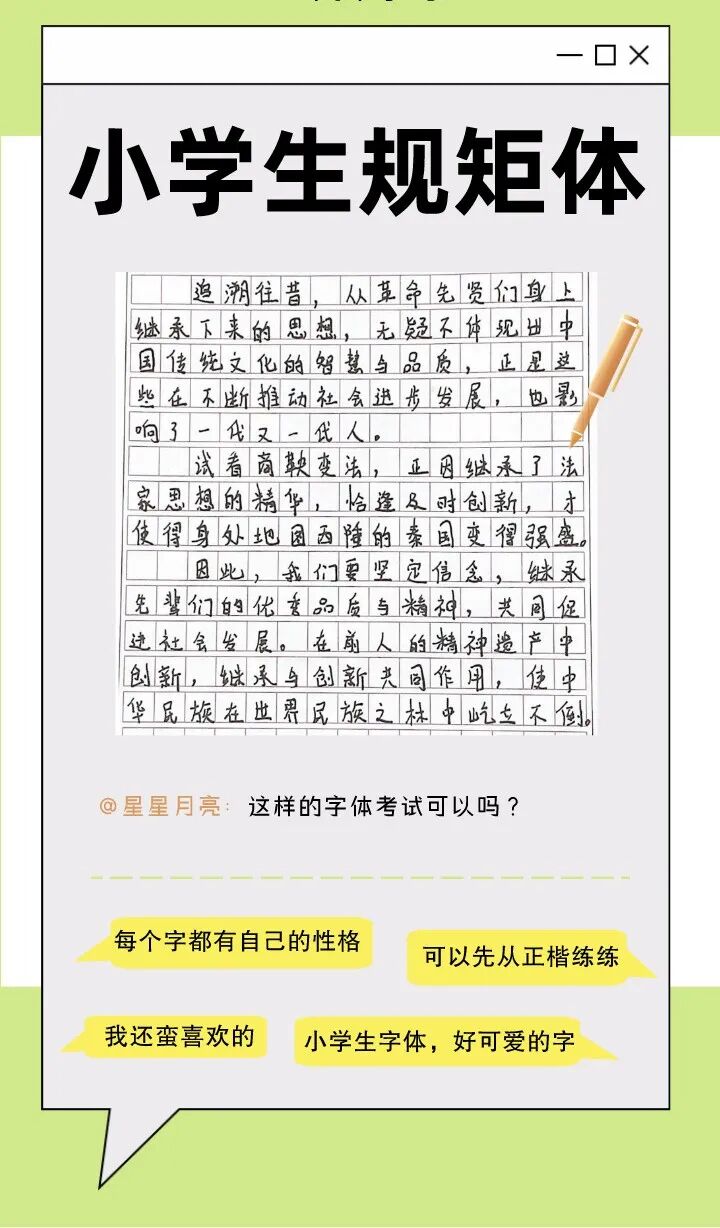 小学生规矩体
追溯往昔，从革命先贤们身上
继承下来的思想，无疑不体现出中
国传统文化的智慧与品质，正是这
些在不断推动社会进步发展，也影
响了一代又一代人。
试看商鞅变法，正因继承了法
家思想的精华，恰逢及时创新，才
使得身处地因西陲的秦国变得强盛。
因此，我们要坚定信念，继承
先辈们的优秀品质与精神，共同促
进社会发展。在前人的精神遗产中
创新，继承与创新共同作用，使中
华民族在世界民族之林中屹立不倒。
@星星月亮：这样的字体考试可以吗？
每个字都有自己的性格
可以先从正楷练练
我还蛮喜欢的
小学生字体，好可爱的字